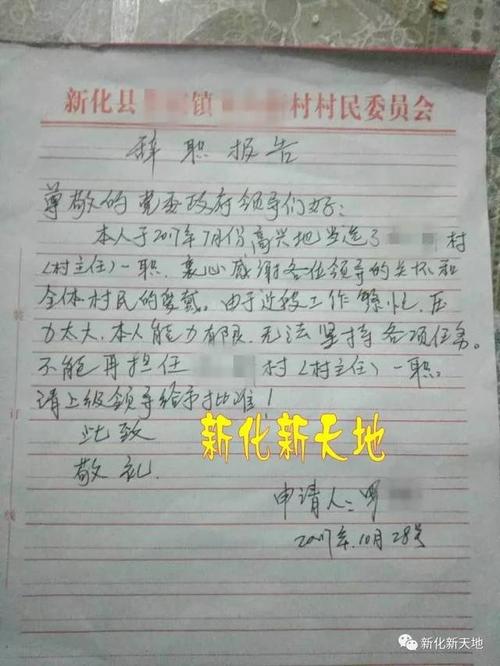 新化县 镇 村村民委员会
辞职报告
尊敬的党委政府领导们好：
本人于2017年7月份高兴地当选了 村
（村主任）一职，衷心感谢各位领导的关怀和
全体村民的爱戴。由于近段工作繁忙，压
力太大，本人能力有限，无法坚持各项任务。
不能再担任 村（村主任）一职。
请上级领导给予批准！
此致
敬礼
新化新天地
申请人：罗
2017年10月28号
装订线
新化新天地